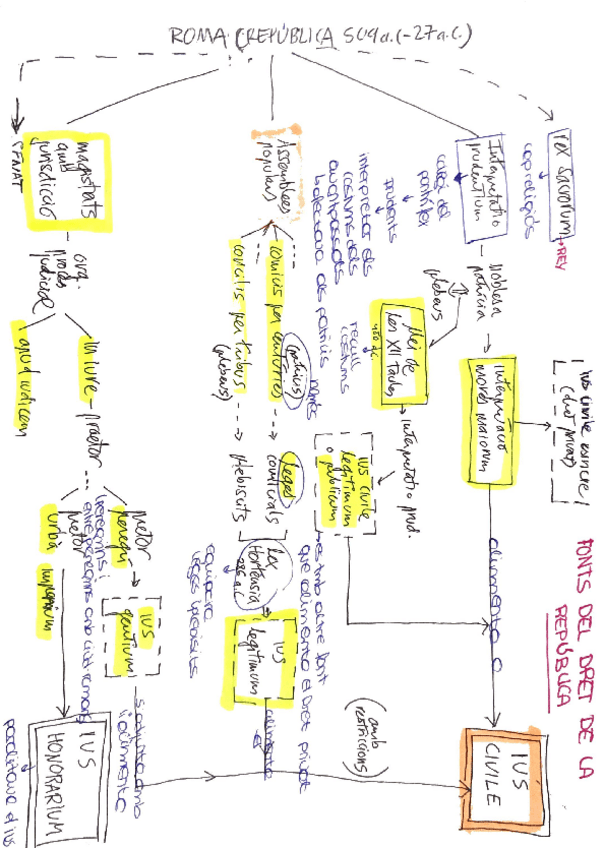 FONTS DEL DRET DE LA
REPÚBLICA
ROMA (REPÚBLICA 509 a.C - 27 a.C.)
rex sacrorum → REY
cap religiós
Interpretatio
prudentium
col·legi del
pontífex
prudents
interpretes els
costums dels
avantpassats
Noblesa
patrícia
plebeus
Interpretació
mores maiorum
ius civile
(dret privat)
Llei de
les XII Taules
recull
costums
interpretatio prud.
IUS CIVILE
legitimum
o publicum
alimenta a
IUS
CIVILE
Assemblees
populars
comicis per centúries
(patricis)
només
concilis per tribus
(plebeus)
leges
comicials
plebiscits
Lex
Hortensia
286 a.C
equipara
leges i plebiscits
IUS
legitimum
és una altre font
que alimenta el Dret privat
alimenta
(amb
restriccions)
SENAT
magistrats
amb
jurisdicció
procés
judicial
in iure
apud iudicem
praetor
pretor
peregrí
(peregrins i
entre peregrins amb ciut. romans)
pretor
urbà
imperium
IUS
gentium
s'ajunta amb
i l'alimenta
IUS
HONORARIUM